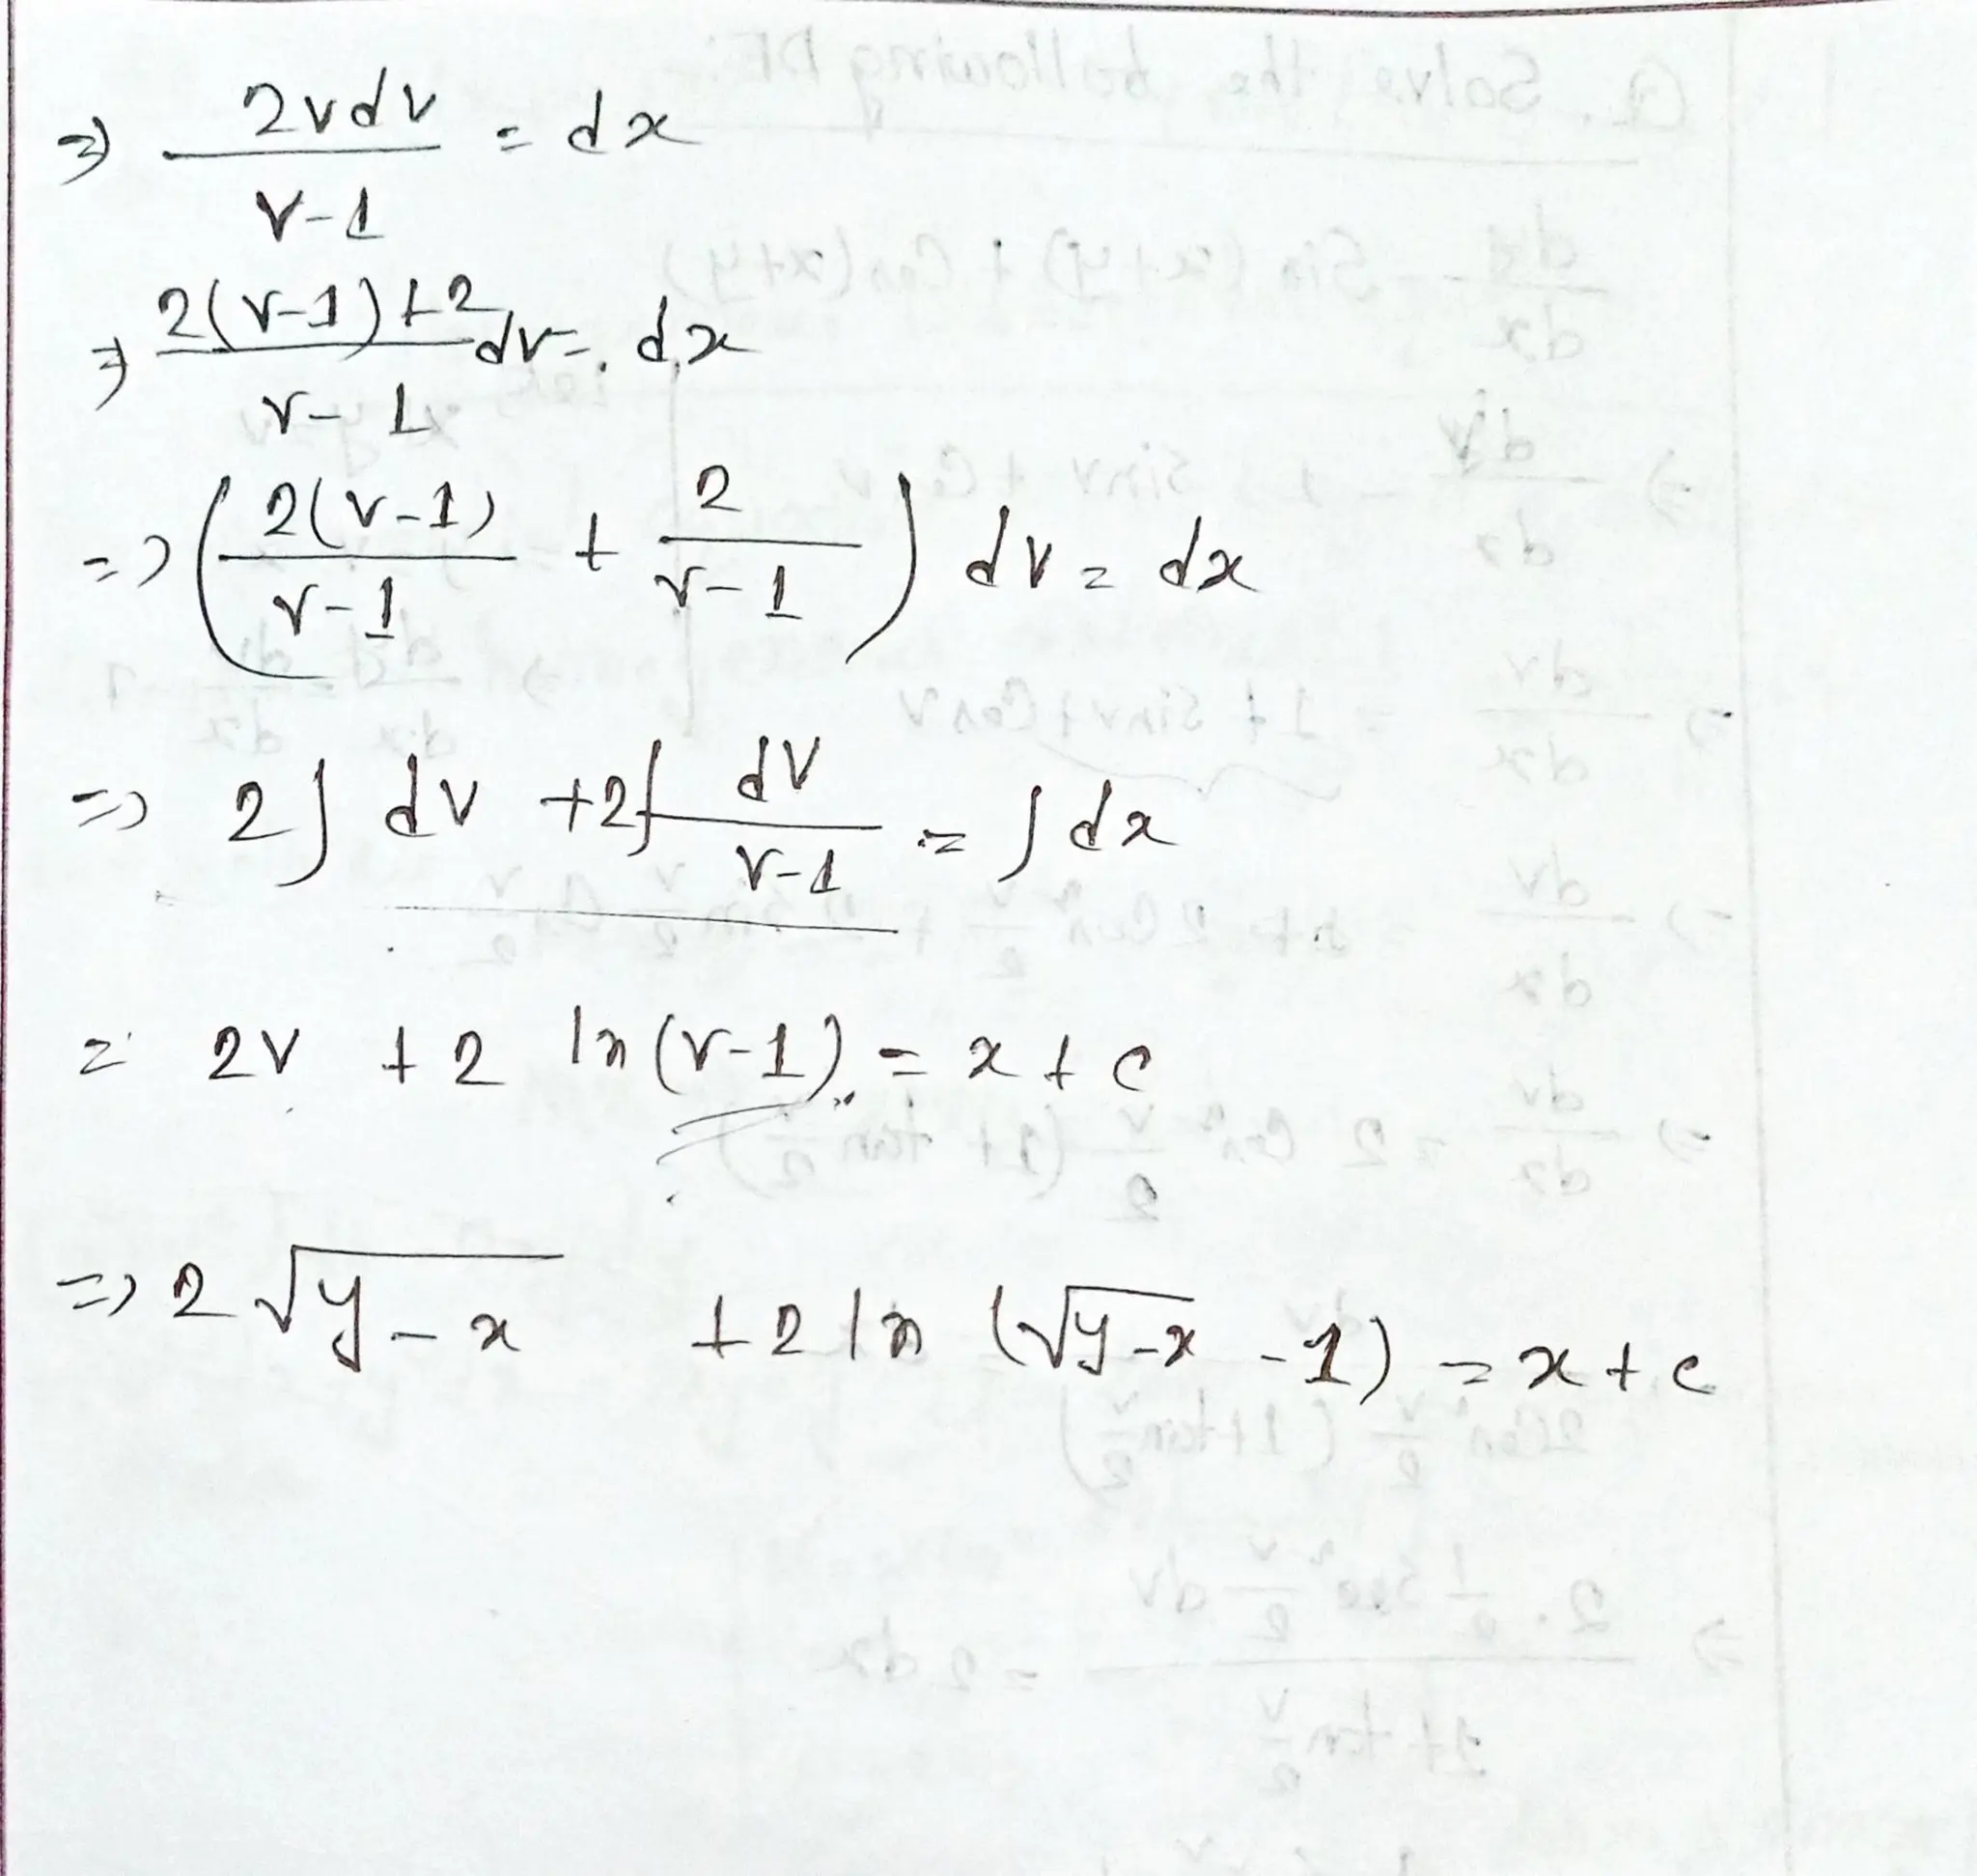 ⇒ 2vdv / v-1 = dx
⇒ 2(v-1)+2 / v-1 dv = dx
⇒ ( 2(v-1) / v-1 + 2 / v-1 ) dv = dx
⇒ 2∫ dv + 2∫ dv / v-1 = ∫ dx
= 2v + 2 ln(v-1) = x + c
⇒ 2 √(y-x) + 2 ln (√(y-x) - 1) = x + c